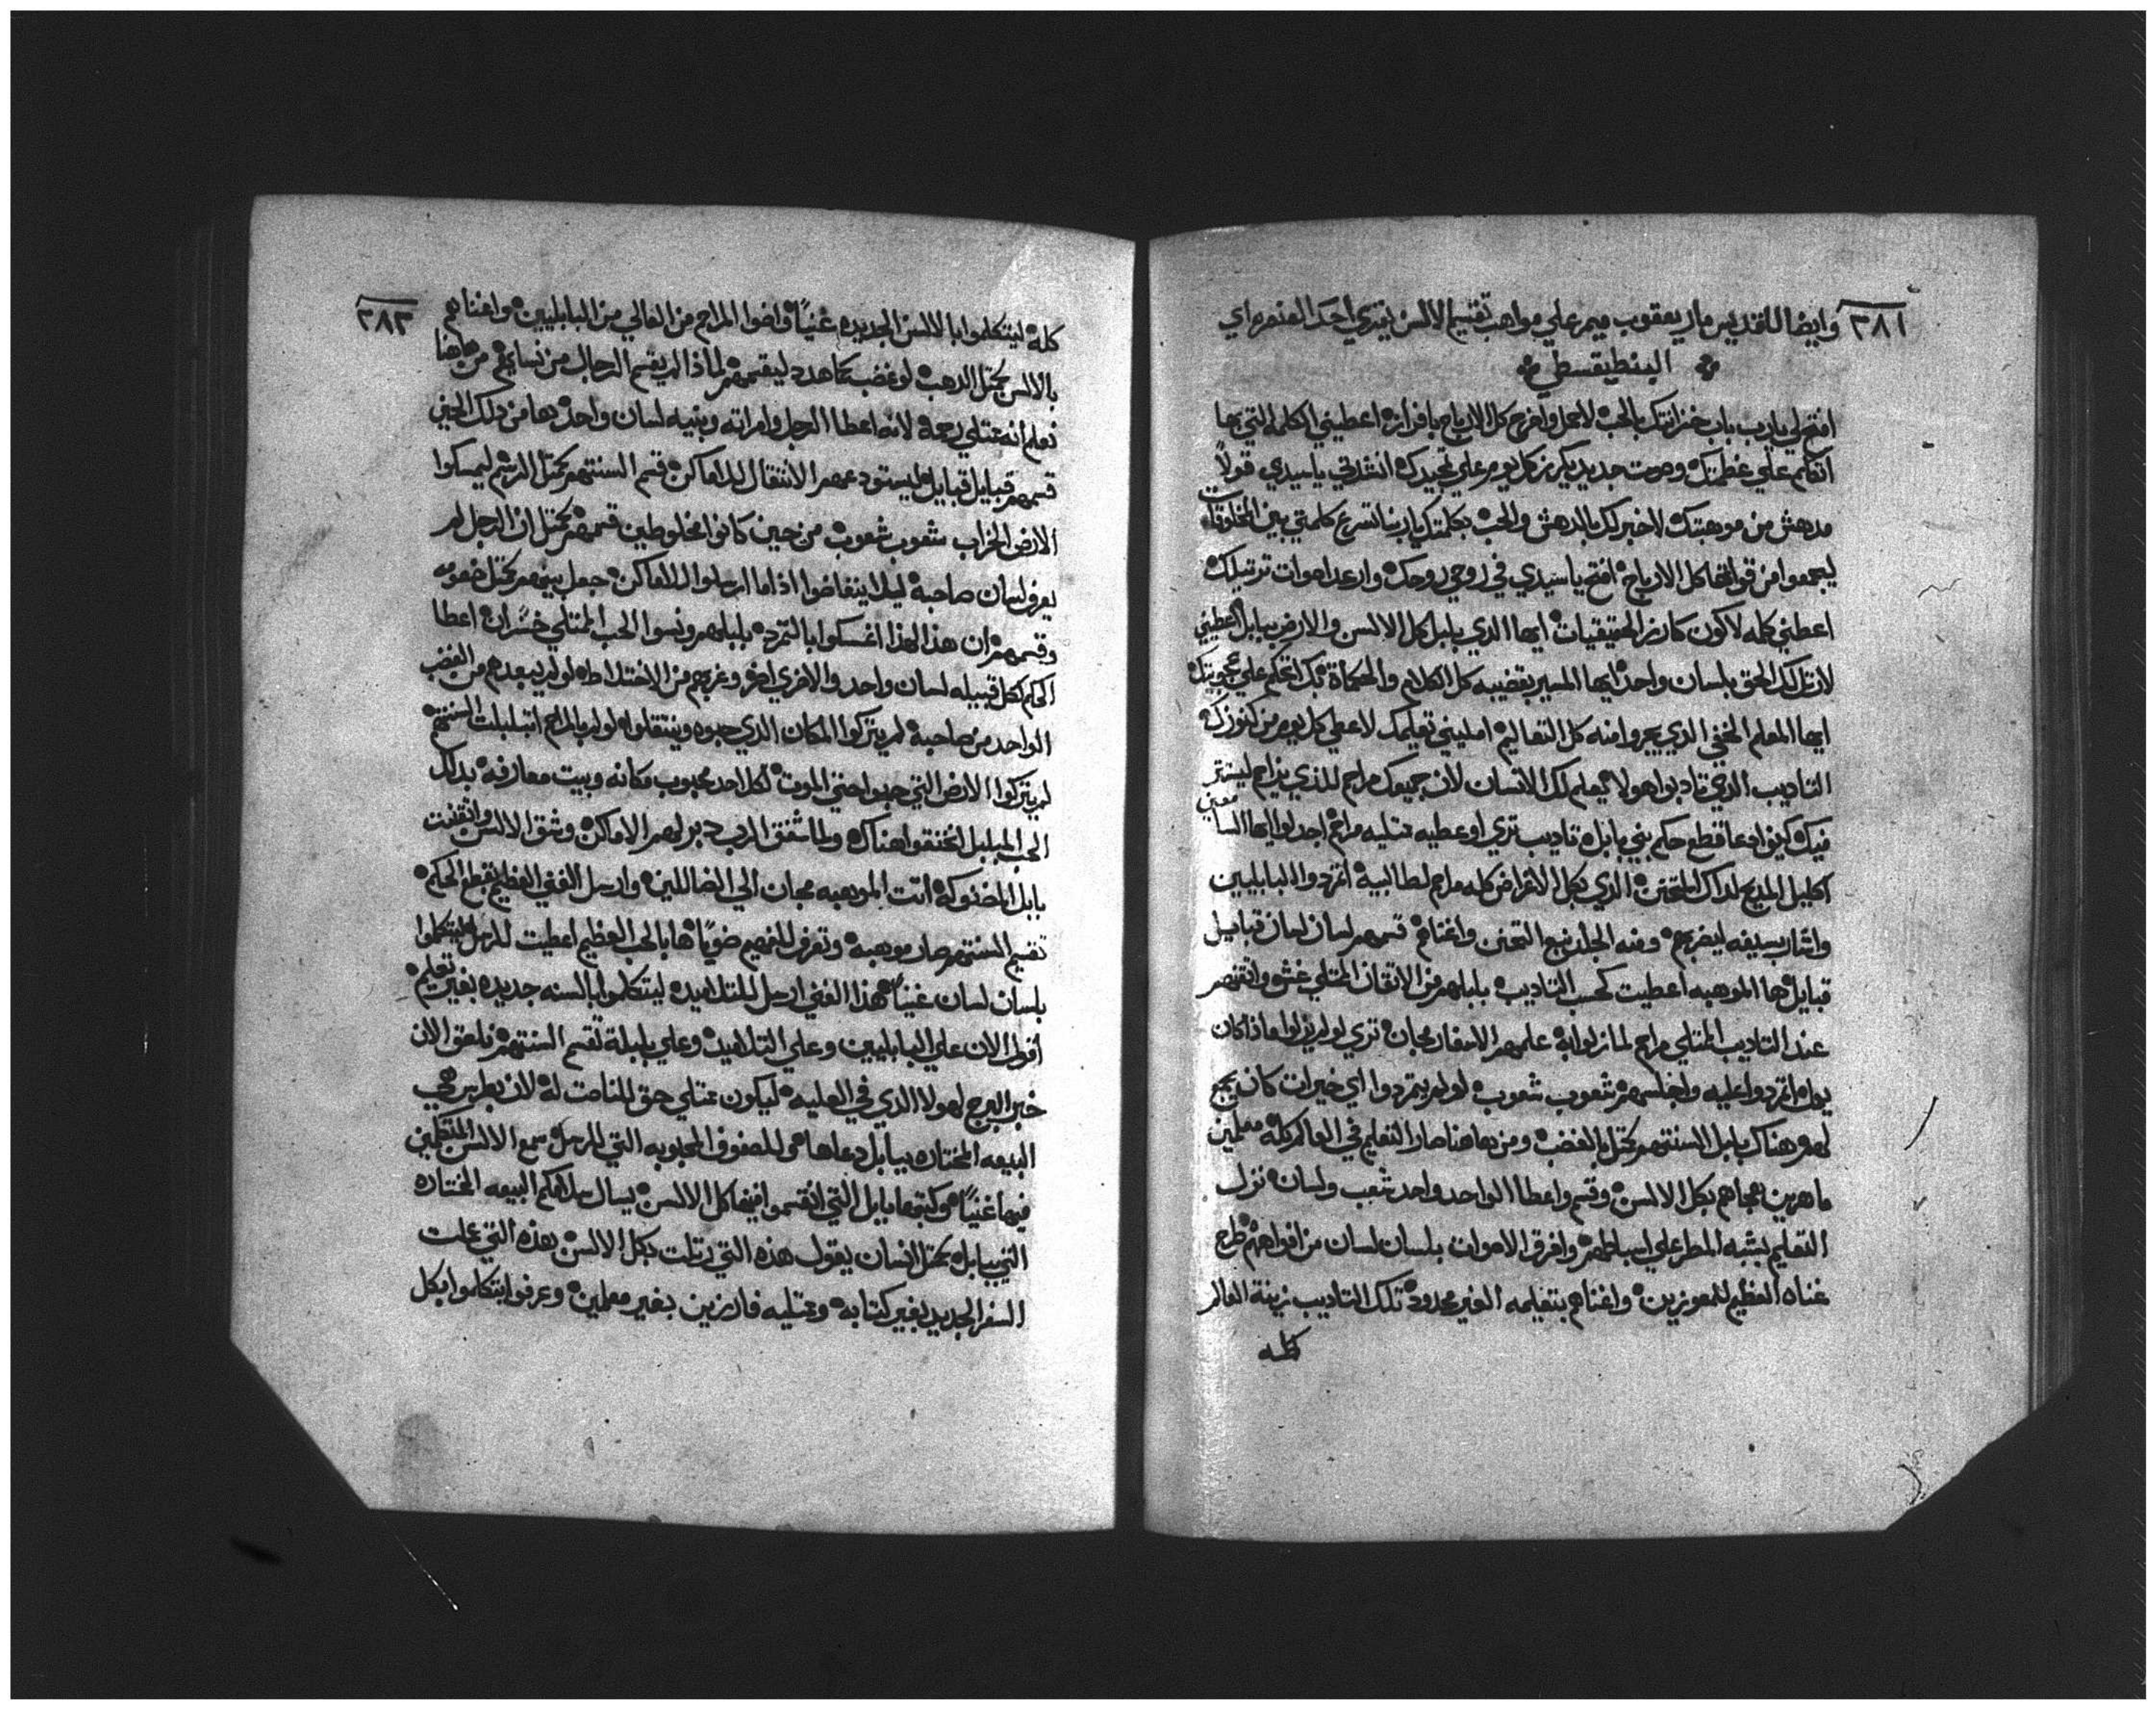 ٣٨١ وايضا للقديس مار يعقوب ميمر علي مواهب تقسيم الالسن يقري احد العنصره اي
البنطيقسطي
افتح لي يا رب باب خزانتك بالحب لادخل واخرج كل الارباح بافرازه اعطيني الكلمه التي بها
اتكلم علي عظمتك وصوت جديد يكرز كل يوم علي تمجيدك انشدني يا سيدي قولاً
مدهش من موهبتك لاخبر لك بالدهش والحب بكلمتك يا ربنا تسرع كلمتي بين المخلوقات
ليجمعوا من قواتها كل الارباح افتح يا سيدي في روحي روحك وارعد اصوات ترتيلك
اعطني كلمه لاكون كارز الحقيقيات ايها الذي بلبل كل الالسن والارض ببابل اعطيني
لارتل لك الحق بلسان واحد ايها المسير بقضيبه كل الكلام والحكماة بك اتكلم علي عجوبتك
ايها المعلم الخفي الذي يجروا منه كل التعاليم امليني تعليمك لاعطي كل يوم من كنوزك
التاديب الذي تادبوا هولا يعلم لك الانسان لان جميعك مراحم للذي يزاحم ليستتر
فيك كنوا دعا قطع حكم بني بابل تاديب تري او عطيه ممتليه مراحم اجدلوا ايها السا معين
اكليل المديح لداك المتحنن الذي بكل الاغراض كله مراحم لطالبيه اتمردوا البابليين
واثار بسيفه ليضربهم ومنه الجلد نبع التحنن واغناهم قسمهم لسان لسان قبايل
قبايل ها الموهبه اعطيت كحسب التاديب بلبلهم من الاتفاق الممتلي غش واقتنصهم
عند التاديب الممتلي مراحم لما نزلوا به علمهم الاسفار مجان تري لو لم ينزلوا ماذا كان
يوله اتمردوا عليه واجلسهم شعوب شعوب لو لم يتمردوا اي خيرات كان يجمع
لهم هناك بابل السنتهم كمثل بالغضب ومن هاهنا صار التعليم في العالم كله معلمين
ماهرين هجاهم بكل الالسن وقسم واعطا الواحد واحد شعب ولسان نزل
التعليم بشبه المطر علي اسباطهم وافرق الاصوات بلسان لسان من افواههم طرح
غناه العظيم للمعوزين واغناهم بتعليمه الغير محدود تلك التاديب زينة العالم
كله
٣٨٢
كله ليتكلموا بالالسن الجديده غنياً فاضوا المراحم من العالي من البابليين واغناهم
بالالسن كمثل الذهب لو غضب كما هدد ليقسمهم لماذا لم يقسم الرجال من نسايهم من هاهنا
نعلم انه ممتلي رحمة لانه اعطا الرجل وامراته وبنيه لسان واحد بها من ذلك الحين
قسمهم قبايل قبايل ليستودعهم الانتقال للاماكن قسم السنتهم كمثل الرسم ليمسكوا
الارض الخراب شعوب شعوب من حين كانوا مخلوطين قسمهم كمثل ان الرجل لم
يعرف لسان صاحبه ليلا يتفاضوا اذا ما ارسلوا للاماكن جعل بينهم كمثل خصومه
وقسمهم ان هذا لهذا اغسكوا بالتمرد بلبلهم ونسوا الحب الممتلي خسران اعطا
الحكم لكل قبيله لسان واحد والاخري اخر وغربهم من الاختلاط لو لم يبعدهم من الغضب
الواحد من صاحبه لم يتركوا المكان الذي حبوه وينتقلوا لو لم بالمراحم اتبلبلت السنتهم
لم يتركوا الارض التي حبوا حتي الموت لكل احد محبوب مكانه وبيت معارفه بذلك
الحب المبلبل اتخنقوا هناك ولما شفق الرب دبر لهم الاماكن وشق الالسن واتقنت
بابل المضنوكه اتت الموهبه مجان الي الضاللين وارسل الغني العظيم بقطع الحكم
تقسيم السنتهم صار موهبه وتعرف للفهيم ضوياً ها بالحب العظيم اعطيت للرسل ليتكلموا
بلسان لسان غنياً هذا الغني ارسل للتلاميد ليتكلموا بالسنه جديده بغير تعليم
اقول الان علي البابليين وعلي التلاميد وعلي بلبلة تقسم السنتهم نلصق الان
خبر البرج لهولا الذي في العليه ليكون ممتلي حق للناصت له لان بطرس في
البيعه المختاره ببابل دعاها هو للصفوف المحبوبه التي للرسل سمع الالسن المتكلمين
فيها غنياً وكتبها بابل التي انقسموا فيها كل الالسن يسال سلامكم البيعه المختاره
التي ببابل كمثل انسان يقول هذه التي رتلت بكل الالسن بهذه التي عملت
السفر الجديد بغير كتابه وممتليه فارزين بغير معلمين وعرفوا يتكلموا بكل